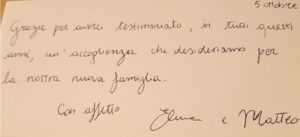 5 ottobre
Grazie per averci testimoniato, in tutti questi
anni, un'accoglienza che desideriamo per
la nostra nuova famiglia.
Con affetto
e Matteo